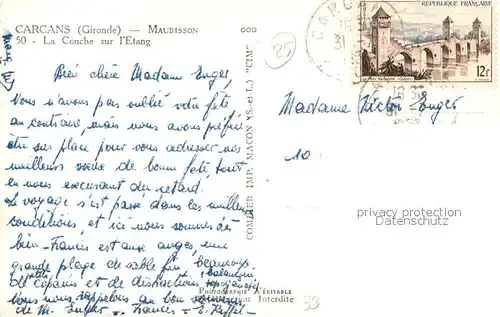 CARCANS (Gironde) — MAUBISSON
50 - La Conche sur l'Etang
Bien chère Madame Enger,
Nous n'avons pas oublié votre fête
au contraire, mais nous avons préféré
être sur place pour vous adresser nos
meilleurs vœux de bonne fête, tout
en nous excusant du retard.
Le voyage s'est passé dans les meilleures
conditions, et ici nous sommes très
bien - Francis est aux anges, une
grande plage de sable fin, beaucoup
de copains et de distractions,
Nous nous rappelons au bon
de M. Enger - Francis -
PHOTOGRAPHIE VÉRITABLE
Reproduction Interdite
COMBIER IMP. MACON (S.-et-L.) "CIM"
25
CARC
REPUBLIQUE FRANÇAISE
12f
Madame Victor Enger
10
privacy protection
watermark
33